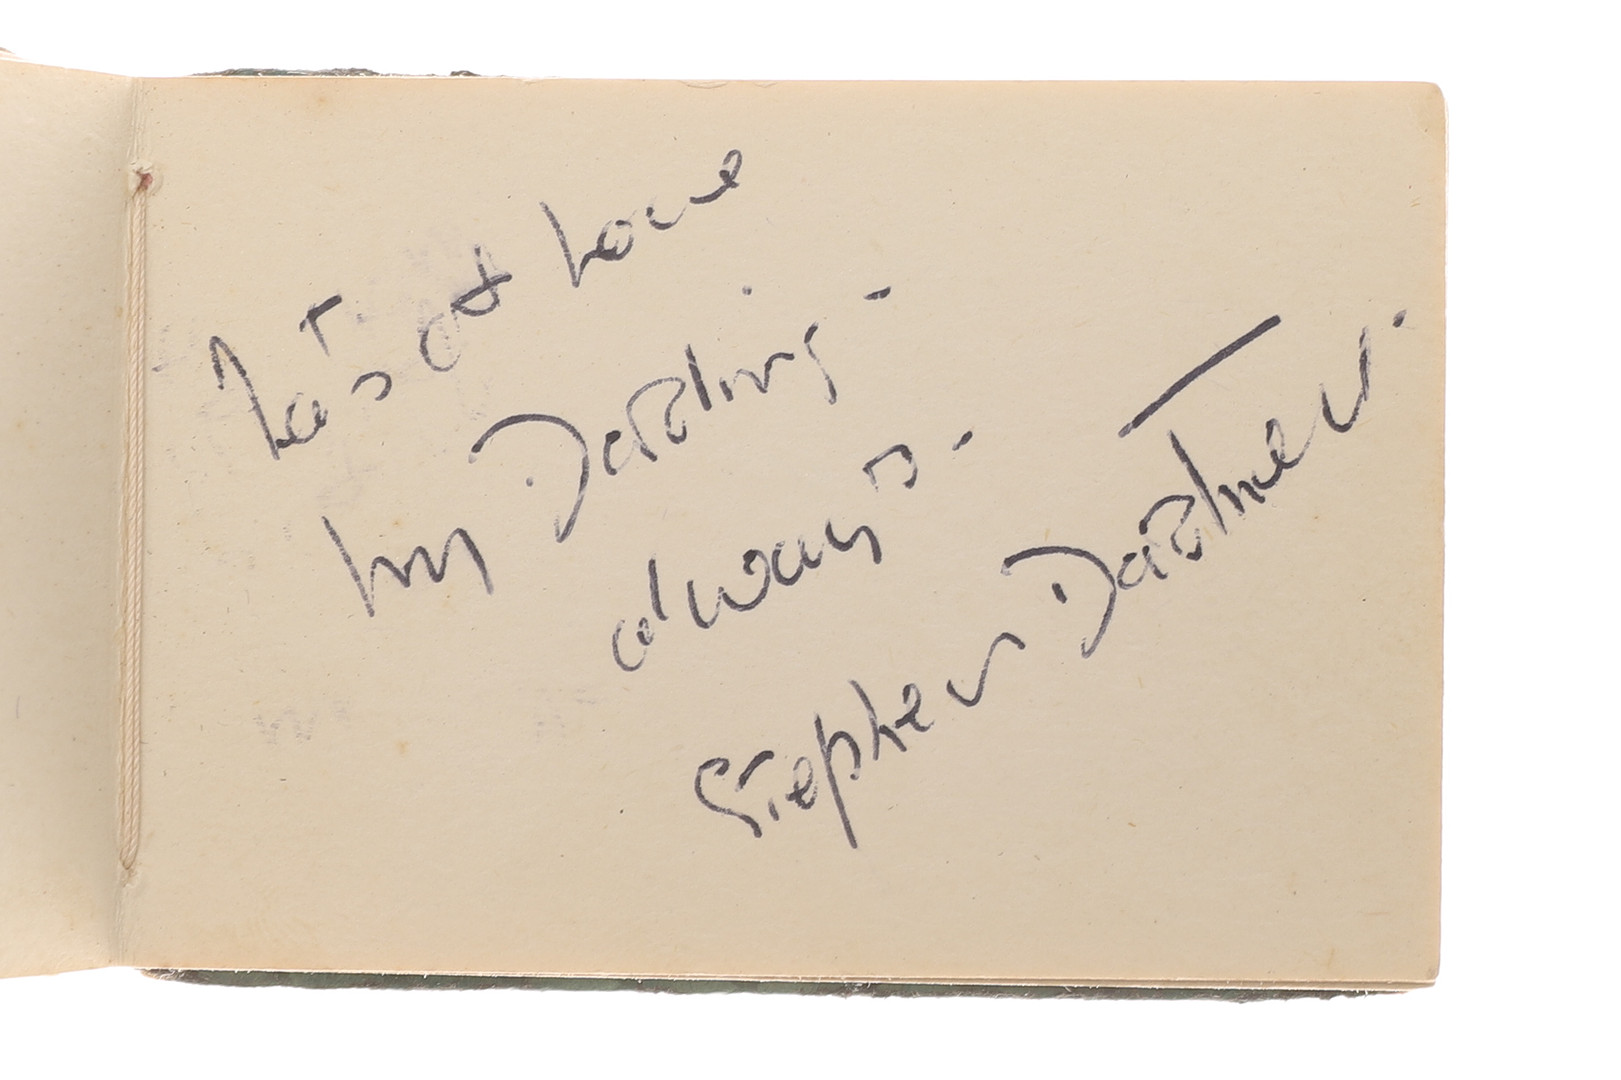 Lots of Love
my Darling -
always -
Stephen Dartnell.